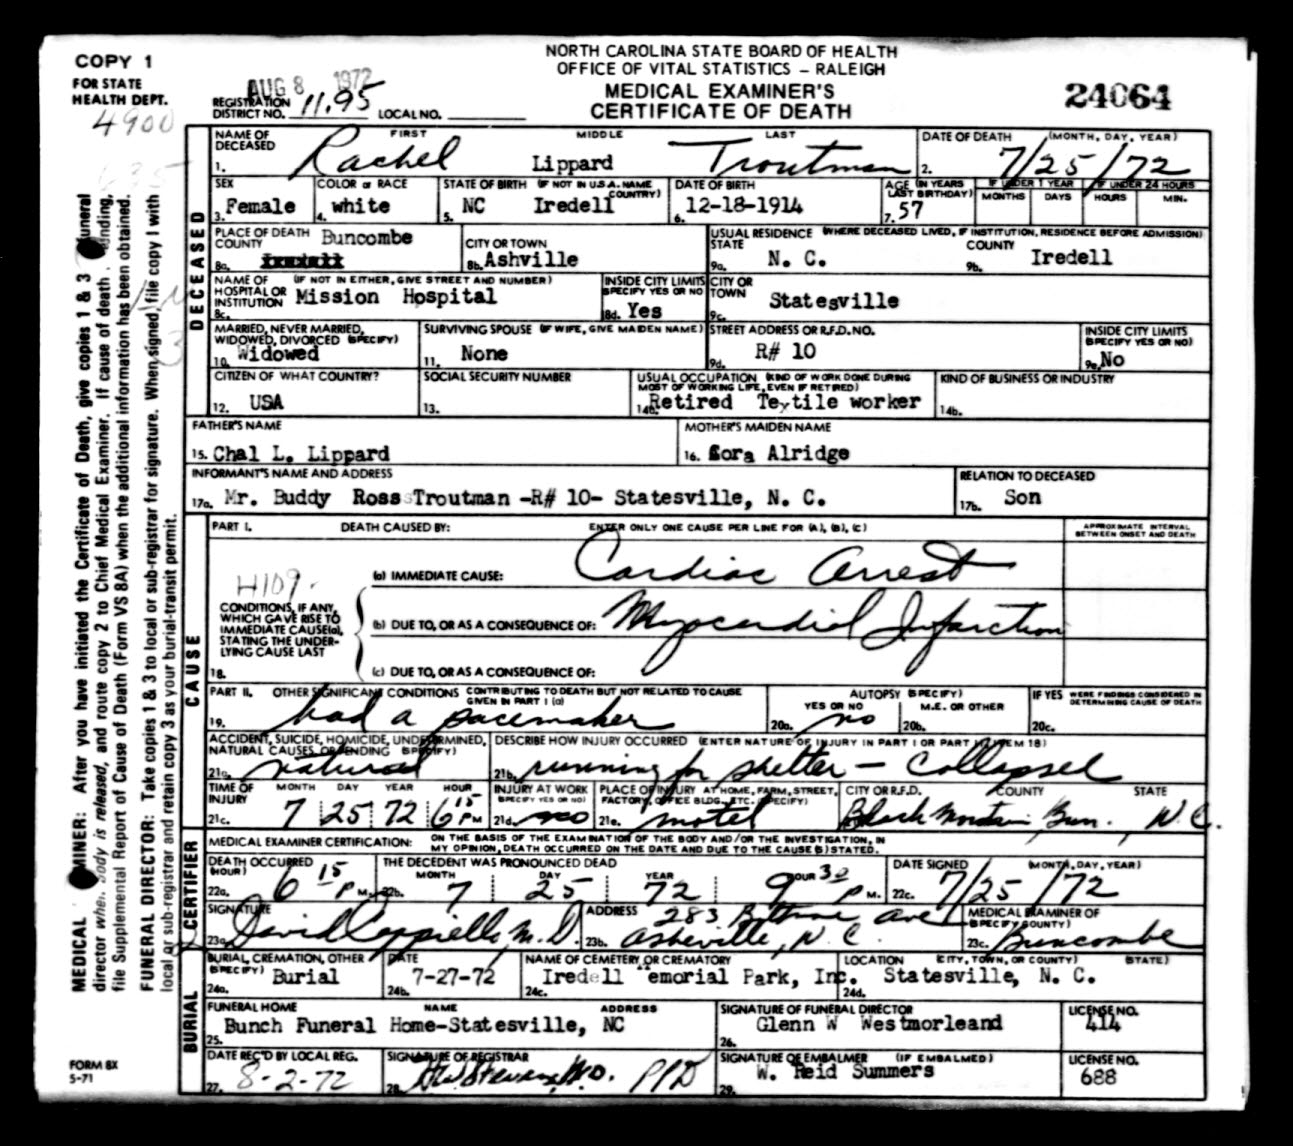 COPY 1
FOR STATE
HEALTH DEPT.
4900
NORTH CAROLINA STATE BOARD OF HEALTH
OFFICE OF VITAL STATISTICS – RALEIGH
MEDICAL EXAMINER'S
CERTIFICATE OF DEATH
24064
AUG 8 1972
REGISTRATION DISTRICT NO. 11.95 LOCAL NO.
DECEASED
NAME OF DECEASED FIRST MIDDLE LAST
1. Rachel Lippard Troutman
DATE OF DEATH (MONTH, DAY, YEAR)
2. 7/25/72
SEX
3. Female
COLOR or RACE
4. white
STATE OF BIRTH (IF NOT IN U.S.A. NAME COUNTRY)
5. NC Iredell
DATE OF BIRTH
6. 12-18-1914
AGE (IN YEARS LAST BIRTHDAY)
7. 57
IF UNDER 1 YEAR
MONTHS DAYS
IF UNDER 24 HOURS
HOURS MIN.
PLACE OF DEATH
COUNTY Buncombe
8a.
CITY OR TOWN
8b. Ashville
USUAL RESIDENCE (WHERE DECEASED LIVED, IF INSTITUTION, RESIDENCE BEFORE ADMISSION)
STATE
9a. N. C.
COUNTY
9b. Iredell
NAME OF HOSPITAL OR INSTITUTION (IF NOT IN EITHER, GIVE STREET AND NUMBER)
8c. Mission Hospital
INSIDE CITY LIMITS (SPECIFY YES OR NO)
8d. Yes
CITY OR TOWN
9c. Statesville
MARRIED, NEVER MARRIED, WIDOWED, DIVORCED (SPECIFY)
10. Widowed
SURVIVING SPOUSE (IF WIFE, GIVE MAIDEN NAME)
11. None
STREET ADDRESS OR R.F.D. NO.
9d. R# 10
INSIDE CITY LIMITS (SPECIFY YES OR NO)
9e. No
CITIZEN OF WHAT COUNTRY?
12. USA
SOCIAL SECURITY NUMBER
13.
USUAL OCCUPATION (KIND OF WORK DONE DURING MOST OF WORKING LIFE, EVEN IF RETIRED)
14a. Retired Textile worker
KIND OF BUSINESS OR INDUSTRY
14b.
FATHER'S NAME
15. Chal L. Lippard
MOTHER'S MAIDEN NAME
16. Cora Alridge
INFORMANT'S NAME AND ADDRESS
17a. Mr. Buddy Ross Troutman -R# 10- Statesville, N. C.
RELATION TO DECEASED
17b. Son
CAUSE
PART I. DEATH CAUSED BY: ENTER ONLY ONE CAUSE PER LINE FOR (A), (B), (C)
APPROXIMATE INTERVAL BETWEEN ONSET AND DEATH
H109.
(a) IMMEDIATE CAUSE: Cardiac Arrest
CONDITIONS, IF ANY, WHICH GAVE RISE TO IMMEDIATE CAUSE(a), STATING THE UNDERLYING CAUSE LAST
(b) DUE TO, OR AS A CONSEQUENCE OF: Myocardial Infarction
18. (c) DUE TO, OR AS A CONSEQUENCE OF:
PART II. OTHER SIGNIFICANT CONDITIONS CONTRIBUTING TO DEATH BUT NOT RELATED TO CAUSE GIVEN IN PART I (a)
19. had a pacemaker
AUTOPSY (SPECIFY)
YES OR NO M.E. OR OTHER
20a. no 20b.
IF YES WERE FINDINGS CONSIDERED IN DETERMINING CAUSE OF DEATH
20c.
ACCIDENT, SUICIDE, HOMICIDE, UNDETERMINED, NATURAL CAUSES, OR PENDING (SPECIFY)
21a. natural
DESCRIBE HOW INJURY OCCURRED (ENTER NATURE OF INJURY IN PART I OR PART II, ITEM 18)
21b. running for shelter – Collapsed
TIME OF INJURY MONTH DAY YEAR HOUR
21c. 7 25 72 6 15 PM
INJURY AT WORK (SPECIFY YES OR NO)
21d. no
PLACE OF INJURY AT HOME, FARM, STREET, FACTORY, OFFICE BLDG., ETC. (SPECIFY)
21e. motel
CITY OR R.F.D. COUNTY STATE
Black Mountain, Bun., N.C.
CERTIFIER
MEDICAL EXAMINER CERTIFICATION: ON THE BASIS OF THE EXAMINATION OF THE BODY AND/OR THE INVESTIGATION, IN MY OPINION, DEATH OCCURRED ON THE DATE AND DUE TO THE CAUSE(S) STATED.
DEATH OCCURRED (HOUR)
22a. 6 15 P M.
THE DECEDENT WAS PRONOUNCED DEAD
MONTH DAY YEAR HOUR
22b. 7 25 72 9 30 P M.
DATE SIGNED (MONTH, DAY, YEAR)
22c. 7/25/72
SIGNATURE
23a. David Cappiello, M.D.
ADDRESS 283 Ave
23b. Asheville, N.C.
MEDICAL EXAMINER OF (SPECIFY COUNTY)
23c. Buncombe
BURIAL
BURIAL, CREMATION, OTHER (SPECIFY)
24a. Burial
DATE
24b. 7-27-72
NAME OF CEMETERY OR CREMATORY
24c. Iredell Memorial Park, Inc.
LOCATION (CITY, TOWN, OR COUNTY) (STATE)
24d. Statesville, N. C.
FUNERAL HOME NAME ADDRESS
25. Bunch Funeral Home-Statesville, NC
SIGNATURE OF FUNERAL DIRECTOR
26. Glenn W Westmorleand
LICENSE NO.
414
DATE REC'D BY LOCAL REG.
27. 8-2-72
SIGNATURE OF REGISTRAR
28. H.W. Stevens, M.D.
SIGNATURE OF EMBALMER (IF EMBALMED)
29. W. Reid Summers
LICENSE NO.
688
FORM 8X
5-71
MEDICAL EXAMINER: After you have initiated the Certificate of Death, give copies 1 & 3 funeral
director when body is released, and route copy 2 to Chief Medical Examiner. If cause of death pending,
file Supplemental Report of Cause of Death (Form VS 8A) when the additional information has been obtained.
FUNERAL DIRECTOR: Take copies 1 & 3 to local or sub-registrar for signature. When signed, file copy 1 with
local or sub-registrar and retain copy 3 as your burial-transit permit.